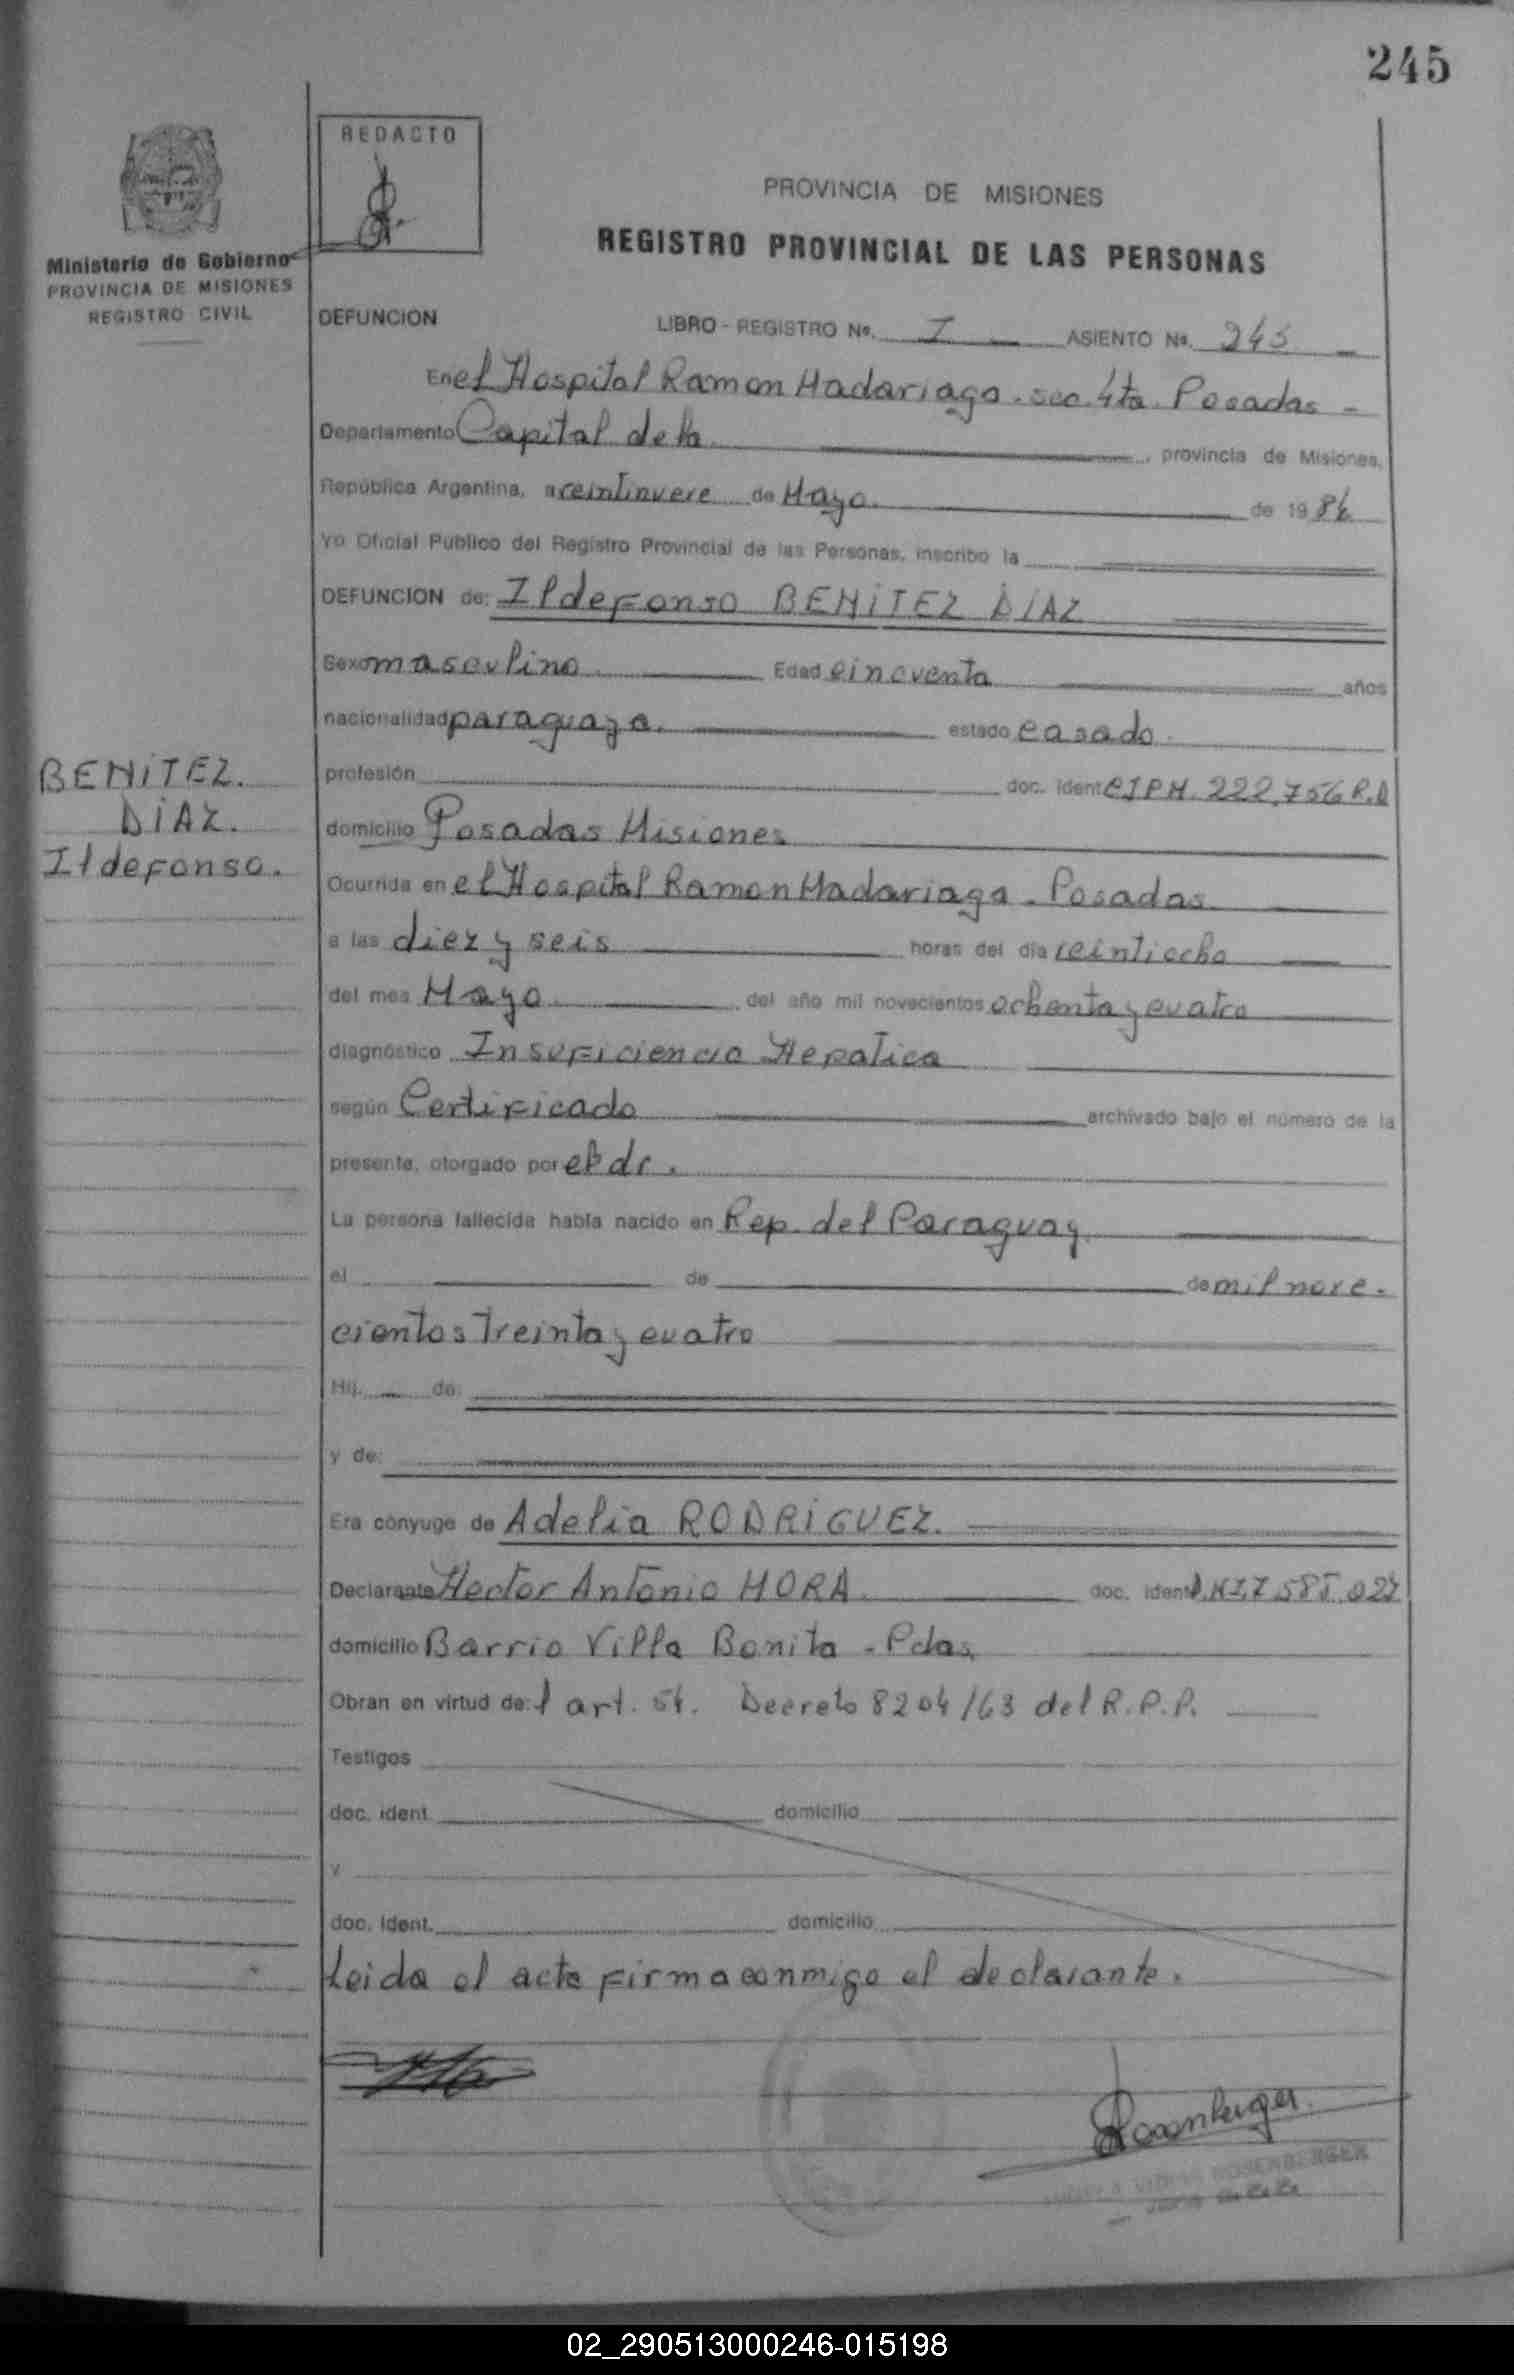 245
REDACTO
PROVINCIA DE MISIONES
REGISTRO PROVINCIAL DE LAS PERSONAS
Ministerio de Gobierno
PROVINCIA DE MISIONES
REGISTRO CIVIL
DEFUNCION LIBRO - REGISTRO No. I ASIENTO No. 245
En el Hospital Ramon Madariaga. sec. 4ta. Posadas -
Departamento Capital de la provincia de Misiones,
República Argentina, a veintinueve de Mayo de 1984
Yo Oficial Público del Registro Provincial de las Personas, inscribo la
DEFUNCION de: Ildefonso BENITEZ DIAZ
Sexo masculino Edad cincuenta años
nacionalidad paraguaya. estado casado.
BENITEZ.
DIAZ.
Ildefonso.
profesión doc. ident CIPM. 222.756 R.D
domicilio Posadas Misiones
Ocurrida en el Hospital Ramon Madariaga - Posadas
a las diez y seis horas del día veintiocho
del mes Mayo del año mil novecientos ochenta y cuatro
diagnóstico Insuficiencia Hepatica
según Certificado archivado bajo el número de la
presente, otorgado por el dr.
La persona fallecida había nacido en Rep. del Paraguay
el de de mil nove.
cientos treinta y cuatro
Hij de:
y de:
Era cónyuge de Adelia RODRIGUEZ.
Declarante Hector Antonio MORA doc. ident
domicilio Barrio Villa Bonita - Pdas.
Obran en virtud de: l art. 54. Decreto 8204/63 del R.P.P.
Testigos
doc. ident. domicilio
y
doc. ident. domicilio
Leida el acta firma conmigo el declarante.
Rosenberger
ROSENBERGER
02_290513000246-015198